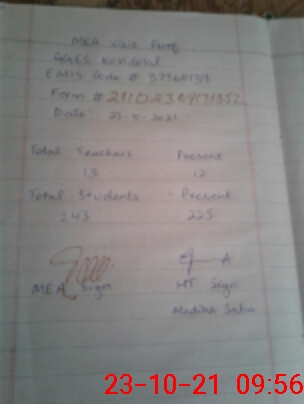 MEA Visit Proof
GGHS
EMIS Code #
Form #
Date: 23-10-2021
Total Teachers Present
13 12
Total Students Present
243 225
MEA Sign HT Sign
Madiha Saba
23-10-21 09:56